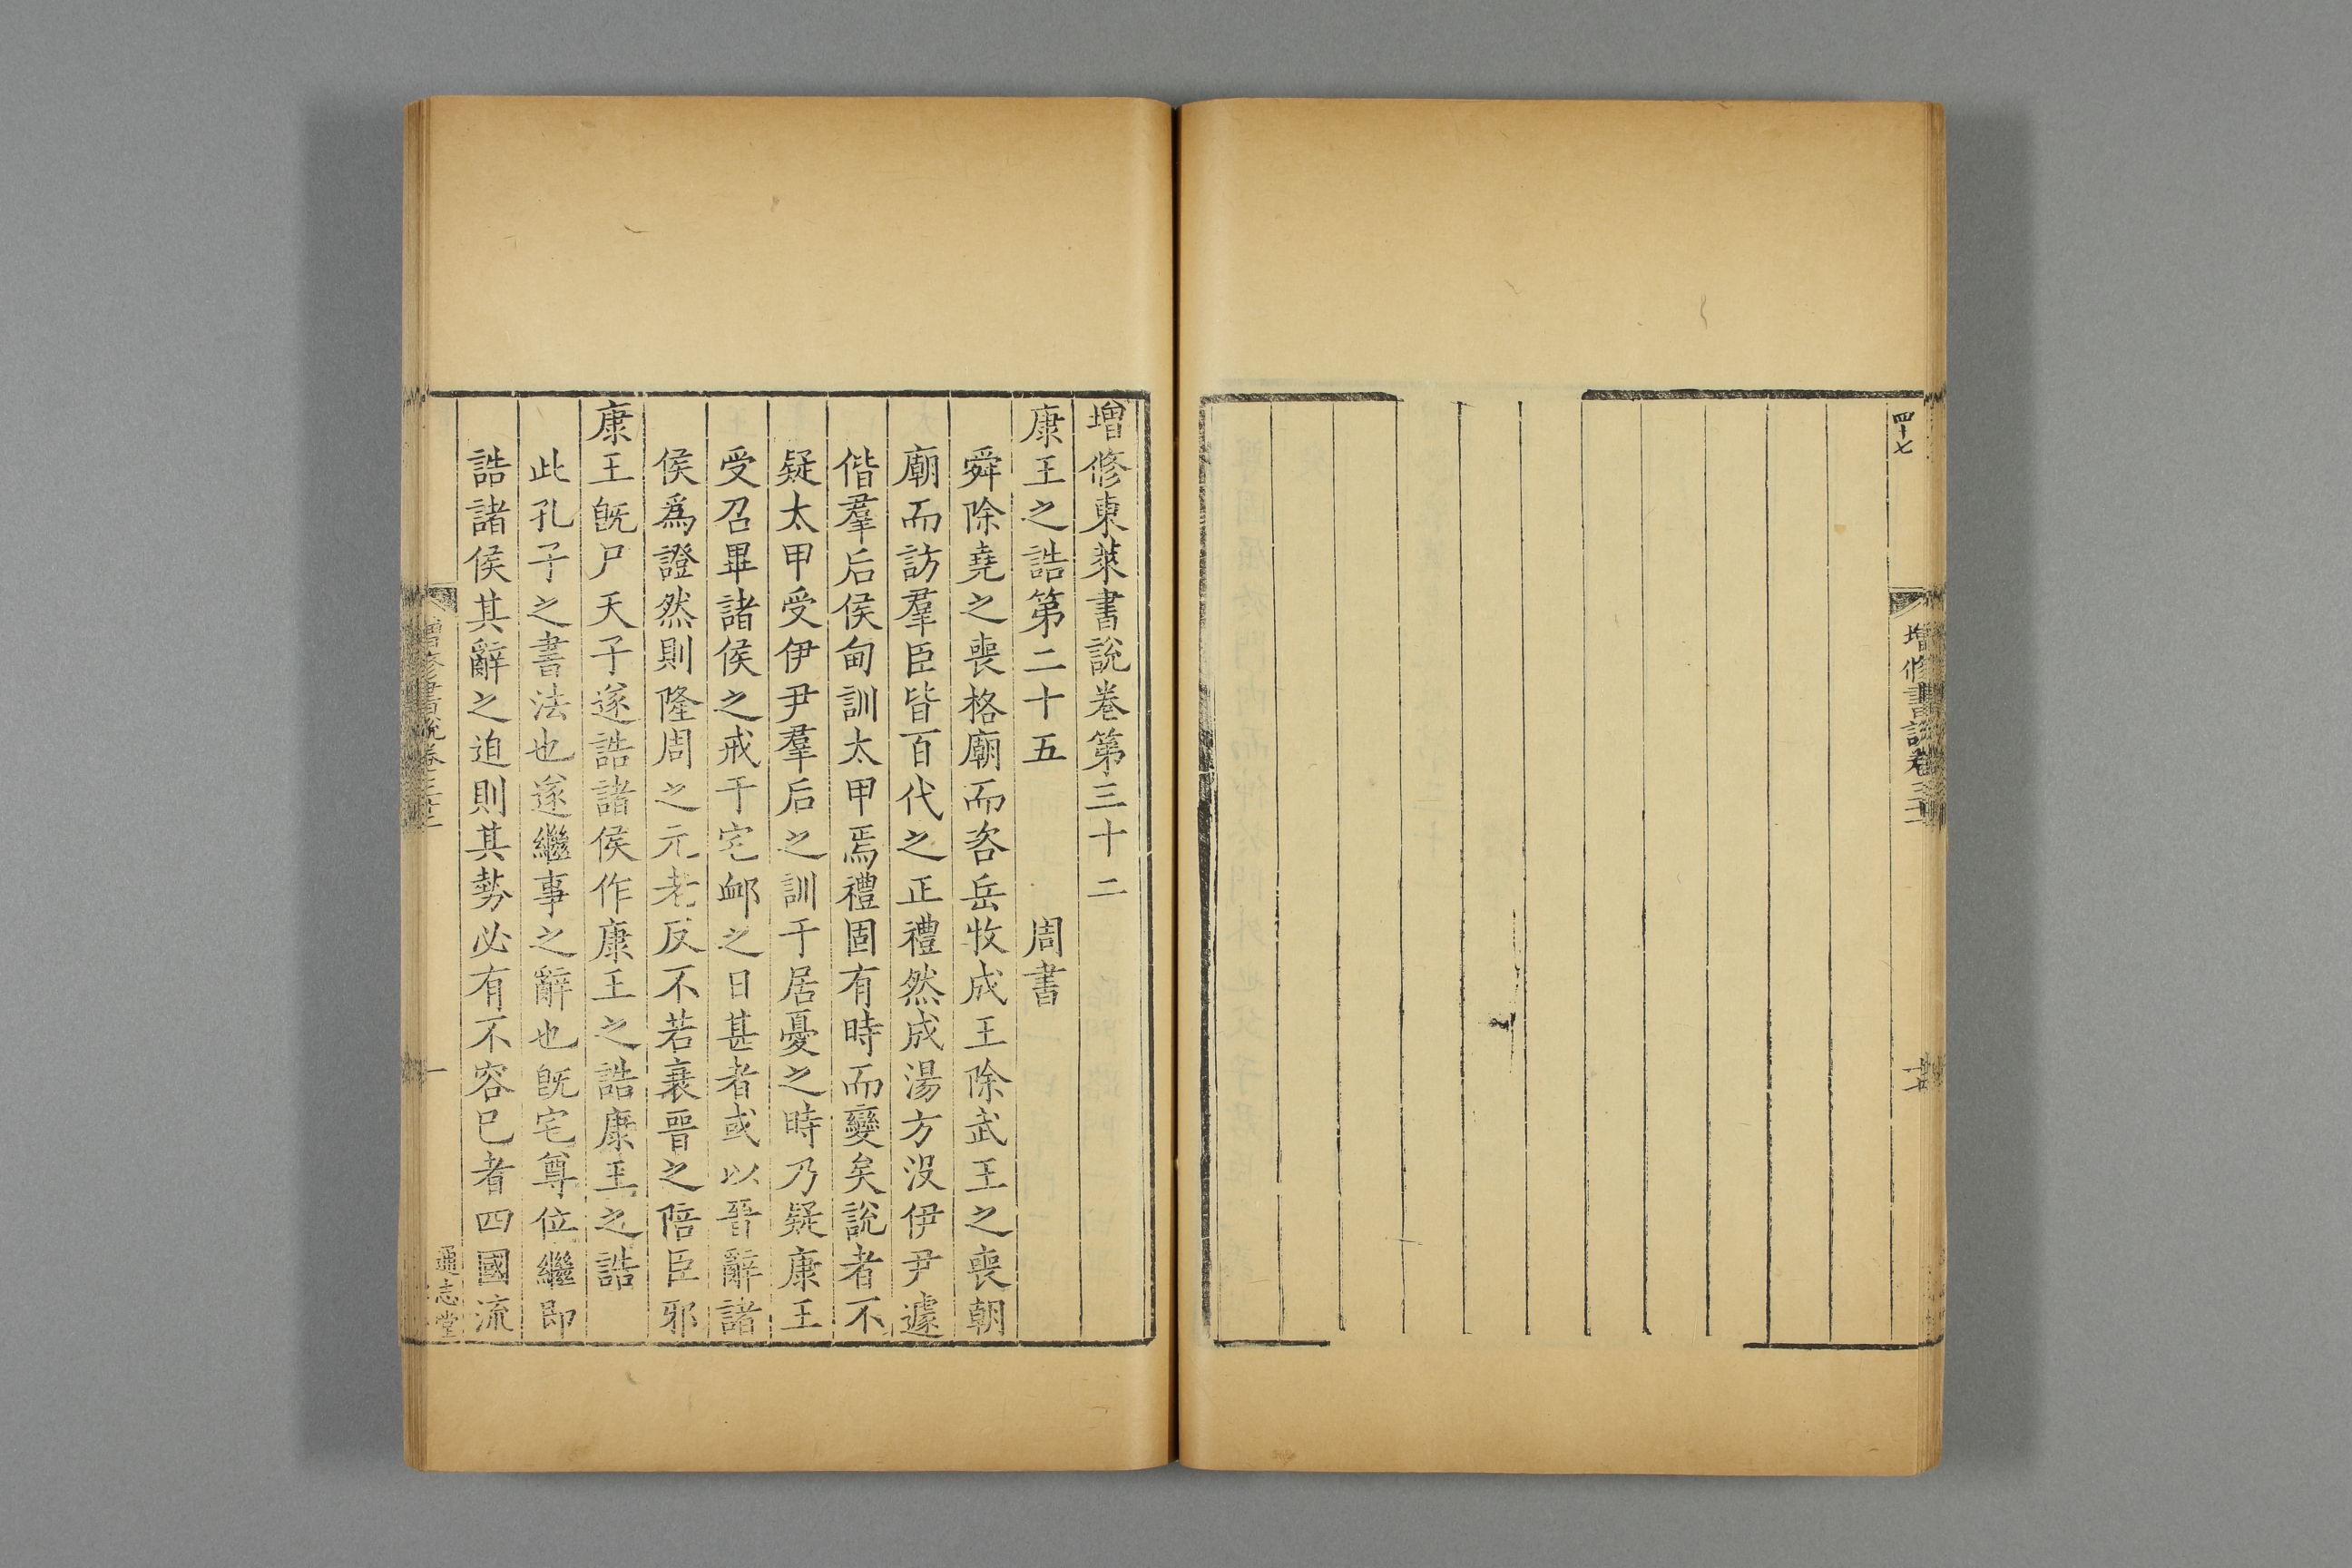 四十七
增修書說卷三十一
增修東萊書說卷第三十二
康王之誥第二十五 周書
舜除堯之喪格廟而咨岳牧成王除武王之喪朝
廟而訪羣臣皆百代之正禮然成湯方沒伊尹遽
偕羣后侯甸訓太甲焉禮固有時而變矣說者不
疑太甲受伊尹羣后之訓于居憂之時乃疑康王
受召畢諸侯之戒于宅卹之日甚者或以晉辭諸
侯爲證然則隆周之元老反不若衰晉之陪臣邪
康王旣尸天子遂誥諸侯作康王之誥康王之誥
此孔子之書法也遂繼事之辭也旣宅尊位繼即
誥諸侯其辭之迫則其勢必有不容已者四國流
增修書說卷三十二
一
通志堂